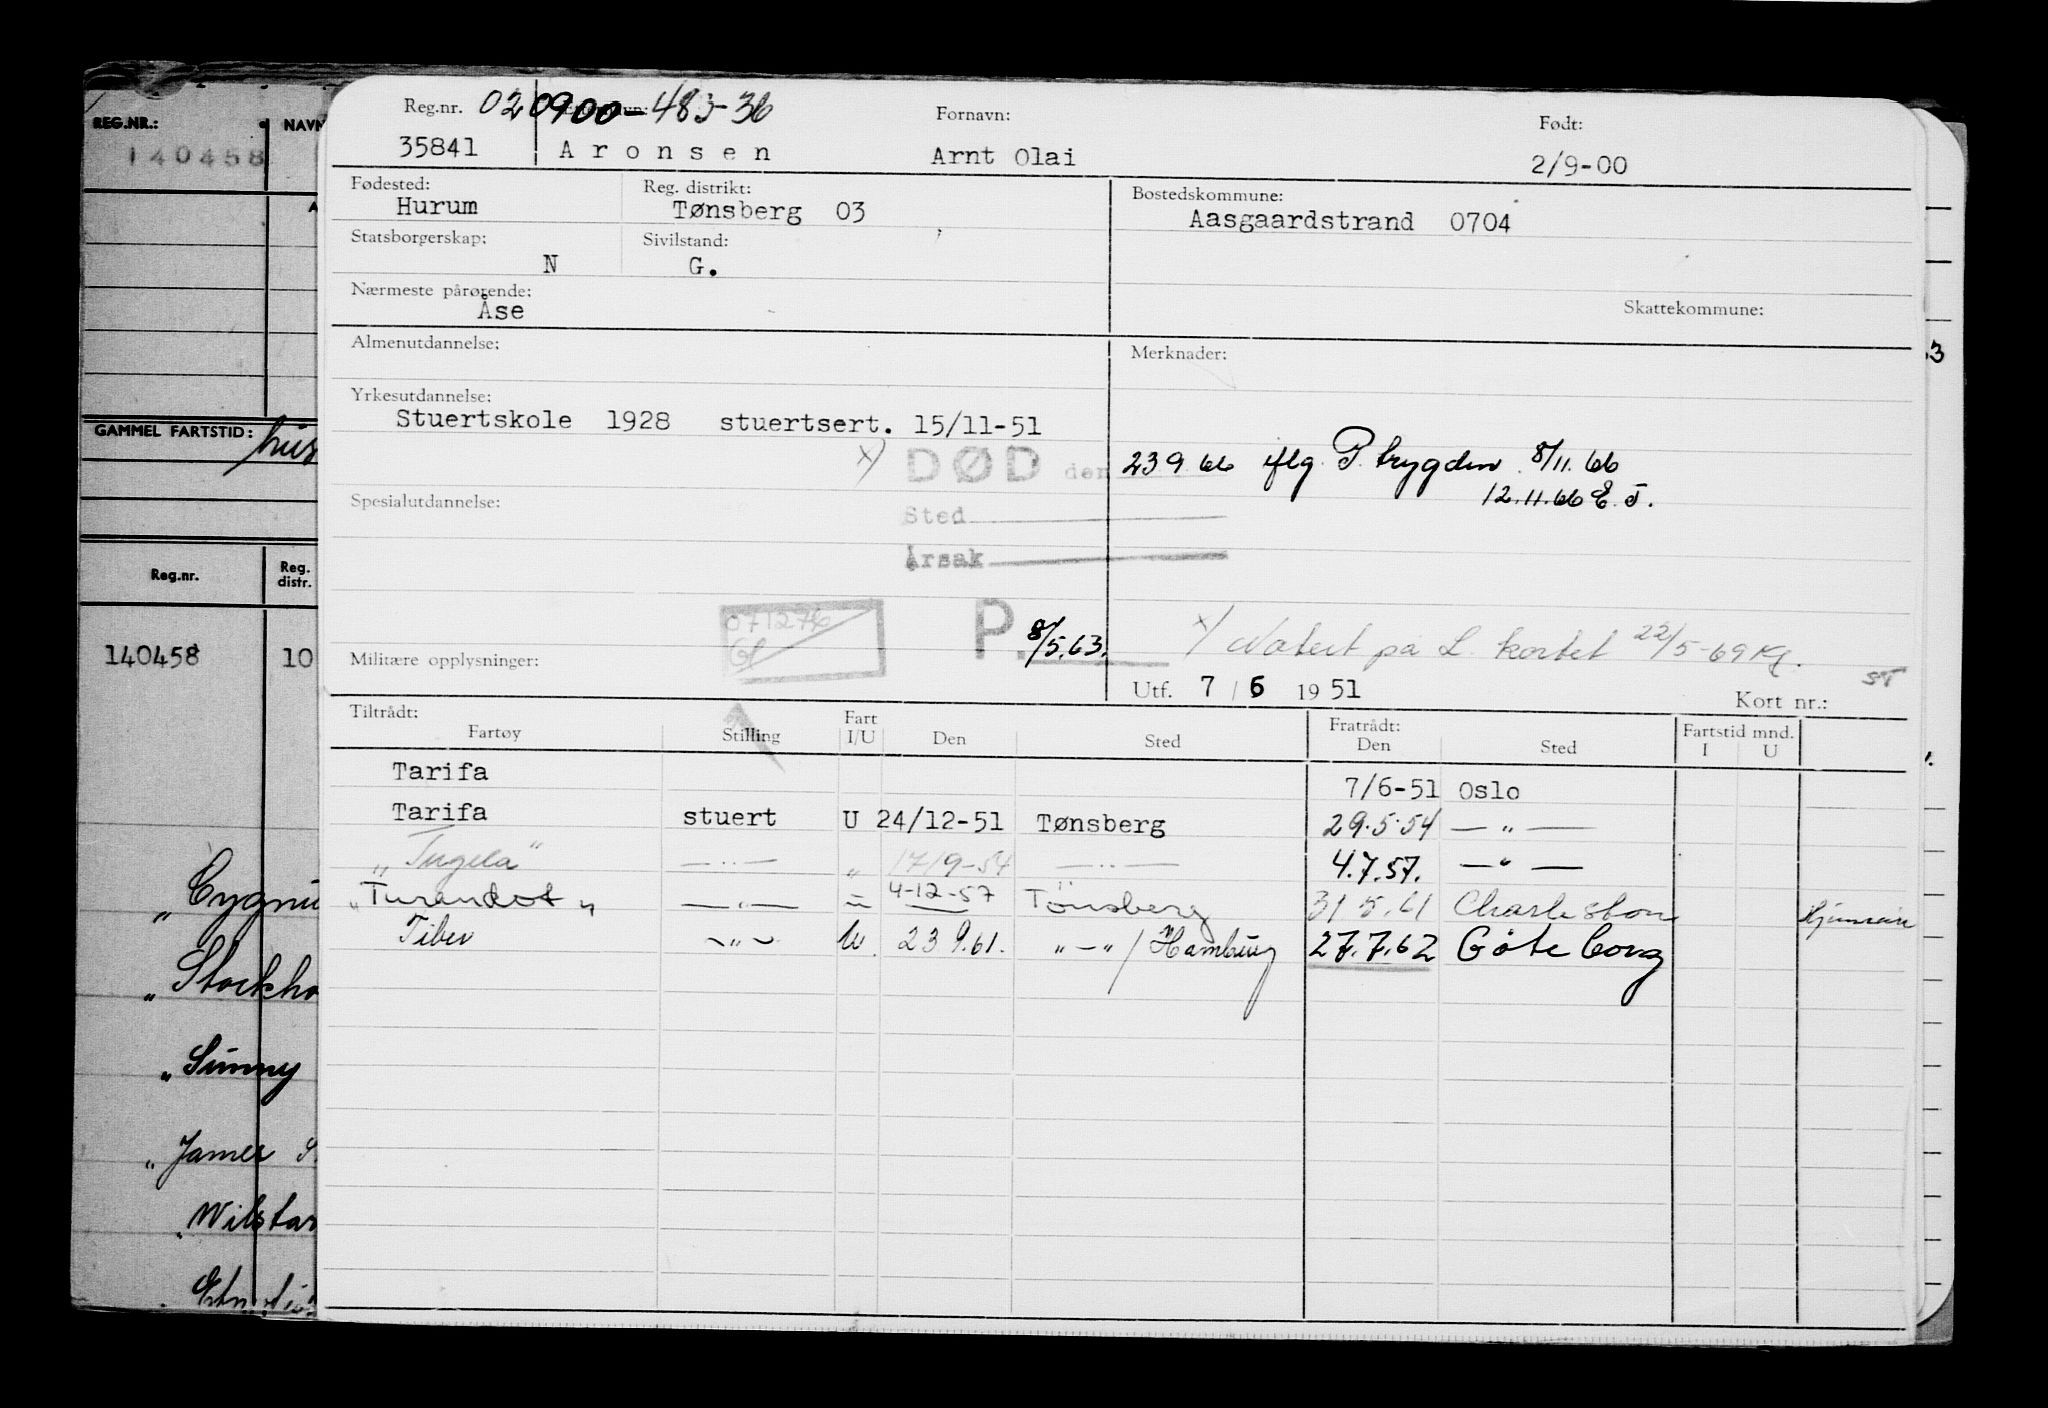 REG.NR.: NAVN
140458
GAMMEL FARTSTID:
Reg.nr. Reg. distr.
140458 10
"Cygnu
"Stockho
"Sunny
"James S.
Wilstar
Reg.nr. 020900-483-36 Fornavn: Født:
35841 Aronsen Arnt Olai 2/9-00
Fødested: Reg. distrikt: Bostedskommune:
Hurum Tønsberg 03 Aasgaardstrand 0704
Statsborgerskap: Sivilstand:
N G.
Nærmeste pårørende: Skattekommune:
Åse
Almenutdannelse: Merknader:
Yrkesutdannelse:
Stuertskole 1928 stuertsert. 15/11-51
x) DØD den 23 9. 66 iflg. P. trygden 8/11. 66
12.11.66 E. T.
Spesialutdannelse: Sted
Årsak
071276
P. 8/5.63. x) Notert på L. kortet 22/5-69 Kf.
Militære opplysninger:
Utf. 7 / 6 19 51 Kort nr.: ST
Tiltrådt: Fart Fratrådt: Fartstid mnd.
Fartøy Stilling I/U Den Sted Den Sted I U
Tarifa 7/6-51 Oslo
Tarifa stuert U 24/12-51 Tønsberg 29.5.54 — " —
"Tugela" — " — " 17/9-54 — " — 4.7.57. — " —
"Turandot" — " — = 4-12-57 Tönsberg 31 5.61 Charleston Hjemreise
Tiber — " — U 23 9.61. " — " / Hamburg 27.7.62 Göteborg